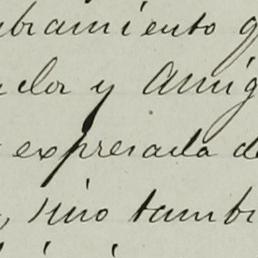 bramiento q
ador y Amig
expresada d
, sino tambi